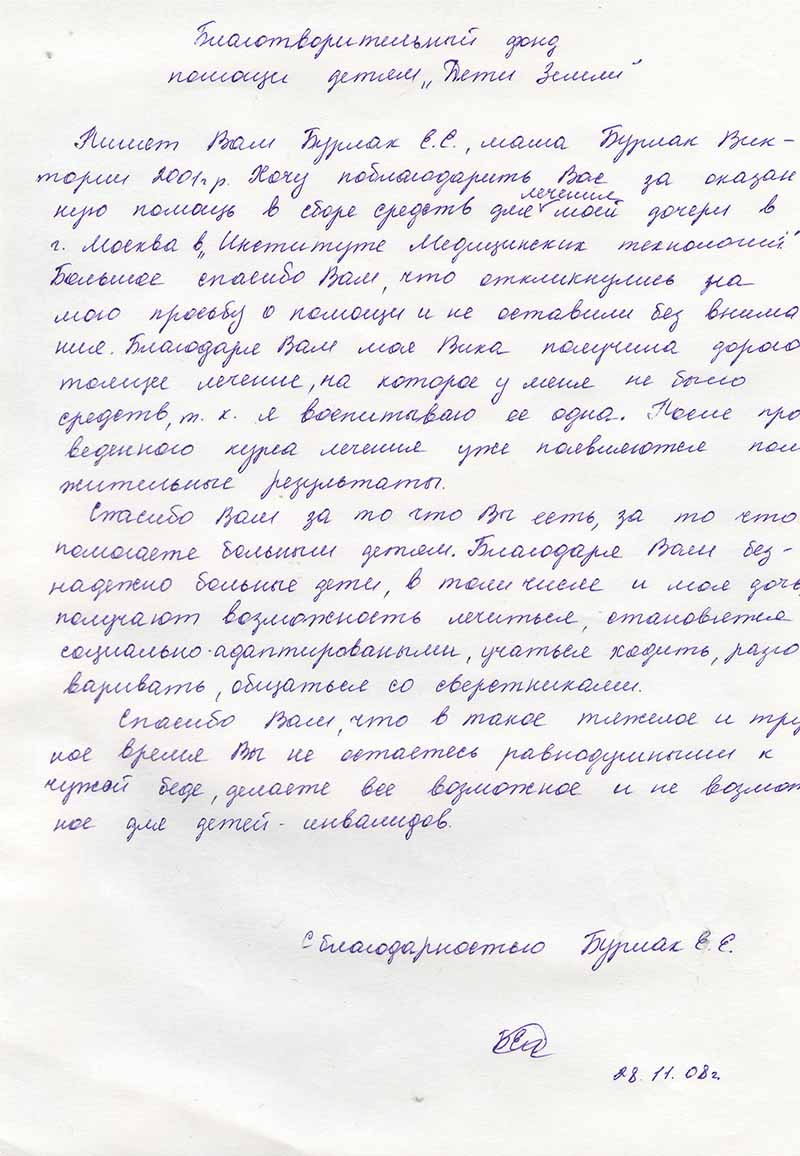 Благотворительный фонд
помощи детям „Дети Земли"
Пишет Вам Бурлак Е.Е., мама Бурлак Вик-
тории 2001г.р. Хочу поблагодарить Вас за оказан
ную помощь в сборе средств для лечения моей дочери в
г. Москва в „Институте Медицинских технологий"
Большое спасибо Вам, что откликнулись на
мою просьбу о помощи и не оставили без внима
ния. Благодаря Вам моя Вика получила дорого
тоящее лечение, на которое у меня не было
средств, т. к. я воспитываю ее одна. После про
веденного курса лечения уже появляются пол
жительные результаты.
Спасибо Вам за то что Вы есть, за то что
помогаете больным детям. Благодаря Вам без-
надежно больные дети, в том числе и моя дочь,
получают возможность лечиться, становятся
социально-адаптироваными, учаться ходить, разго
варивать, общаться со сверстниками.
Спасибо Вам, что в такое тяжелое и тру
ное время Вы не остаетесь равнодушными к
чужой беде, делаете все возможное и не возмож
ное для детей-инвалидов.
С благодарностью Бурлак Е.Е.
28.11.08г.